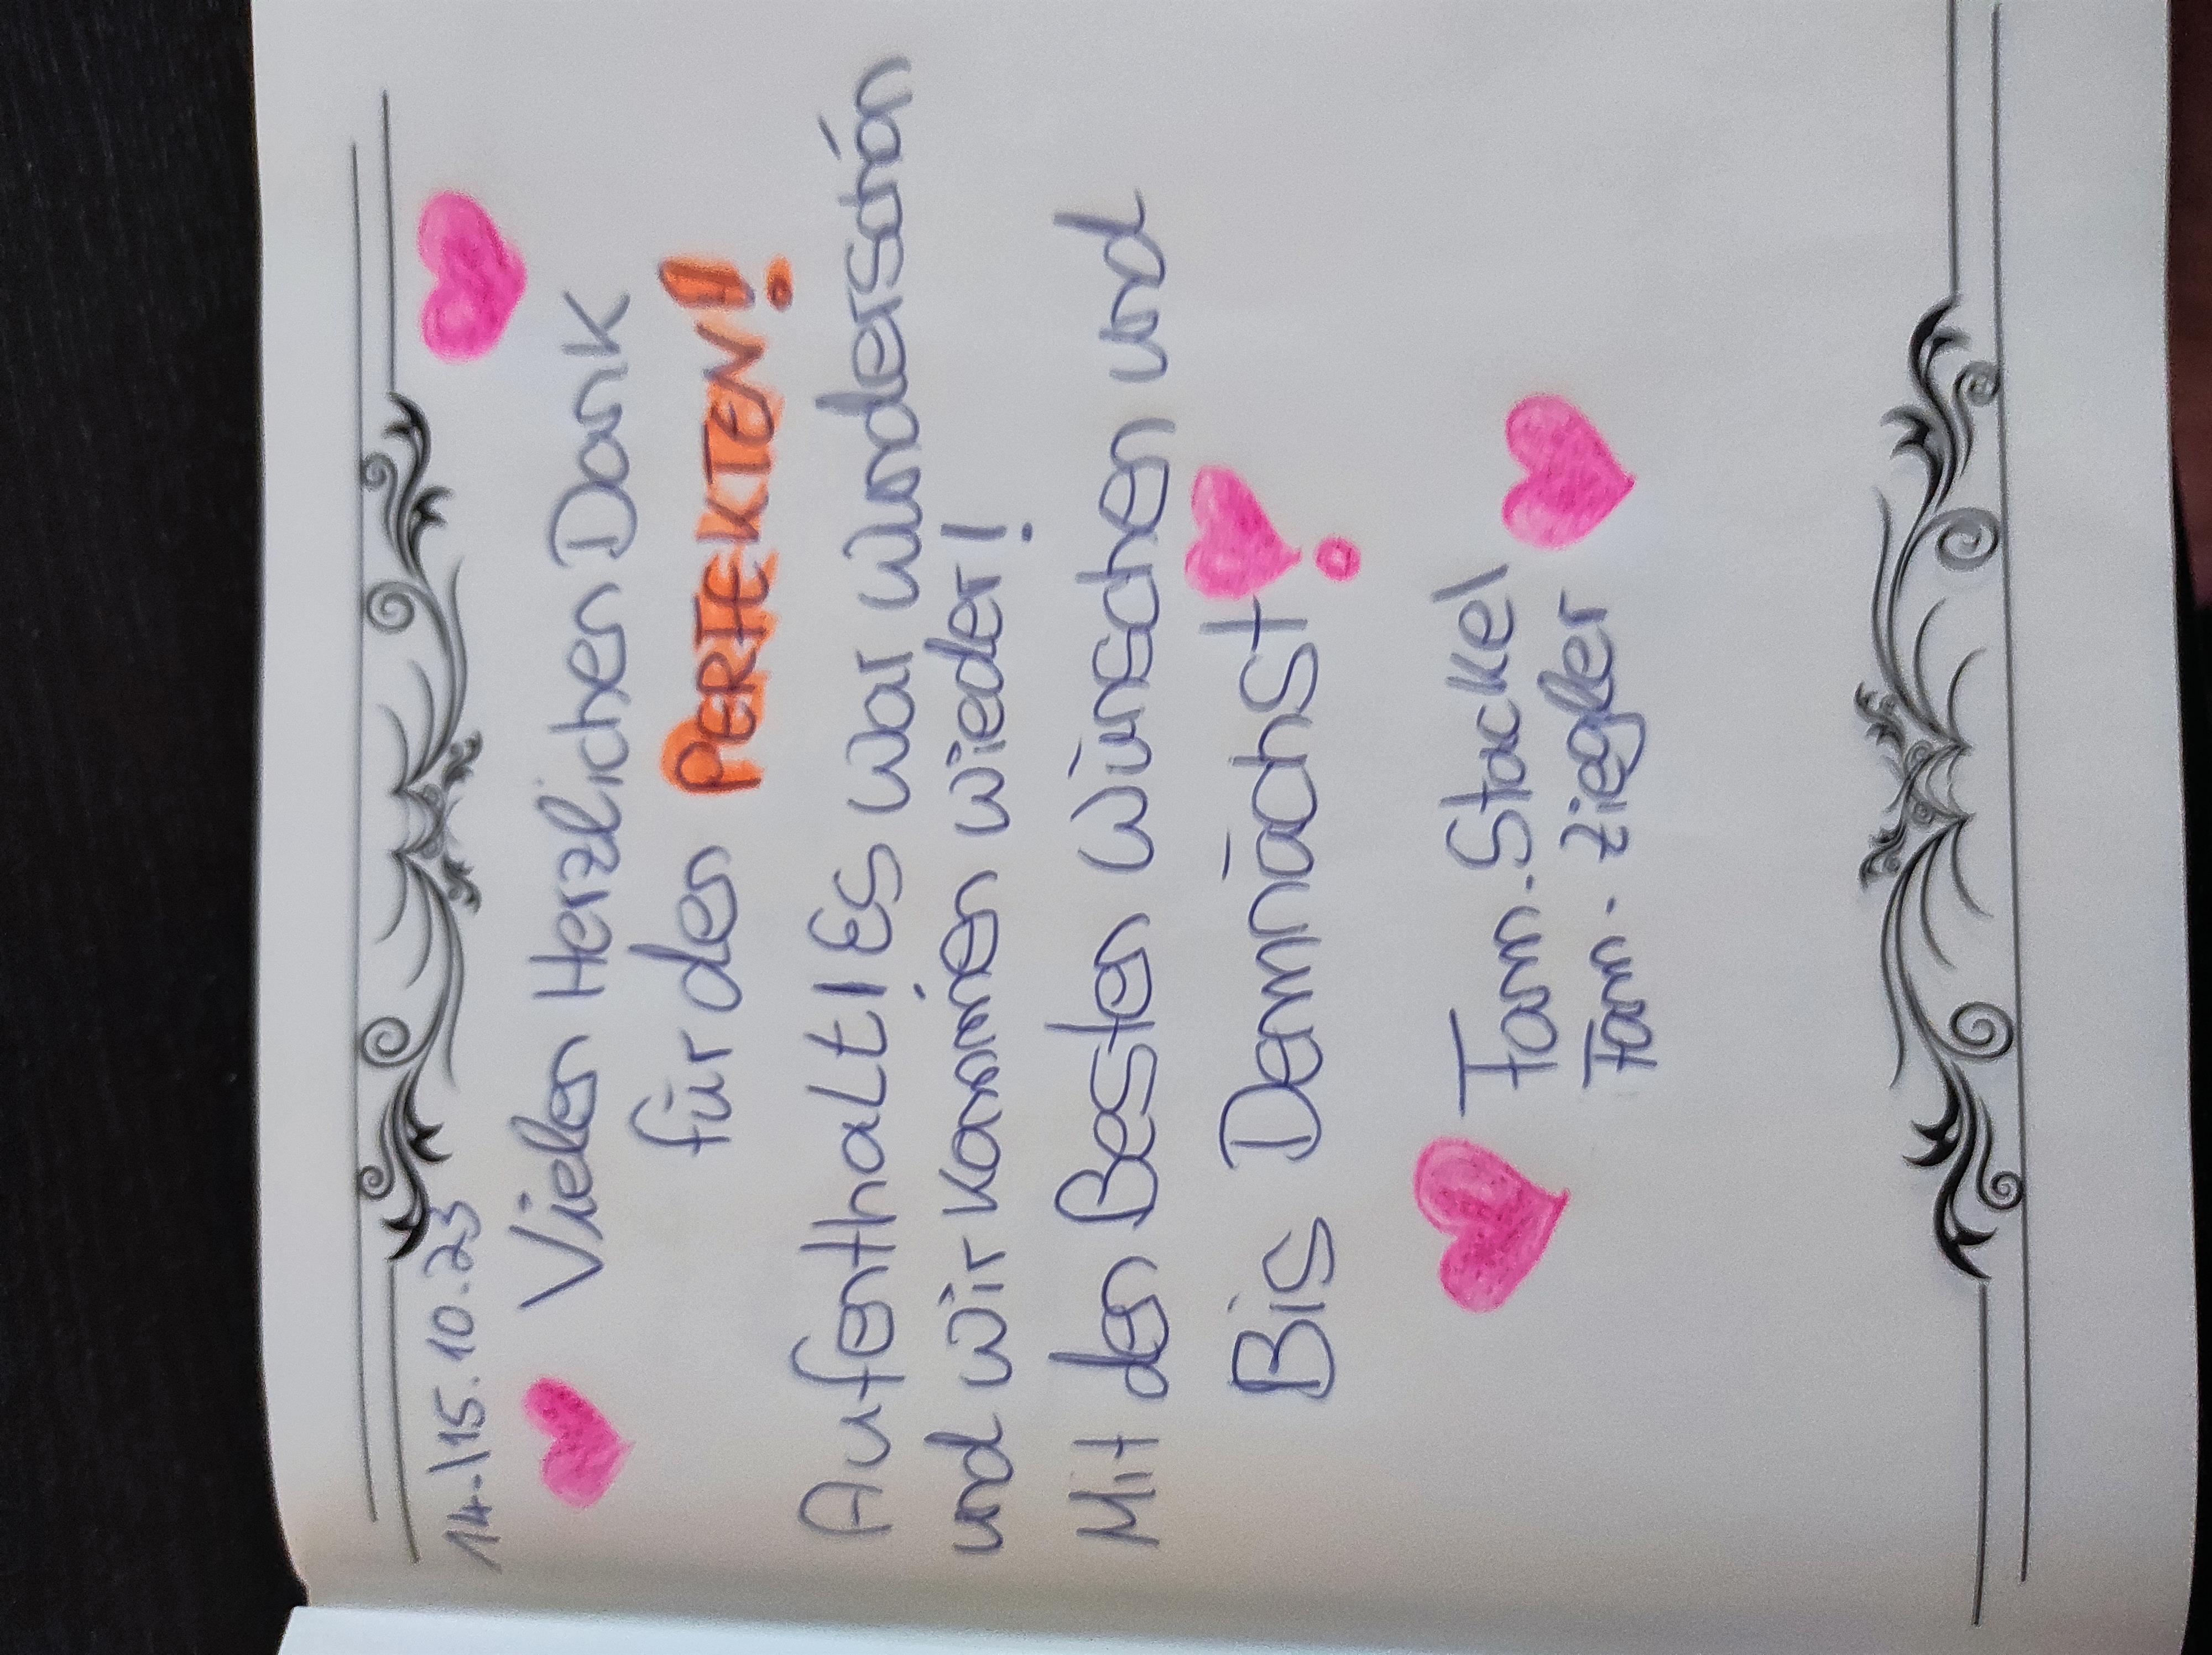 14.-|15.10.23
Vielen Herzlichen Dank
für den PERFEKTEN!
Aufenthalt! Es war wunderschön
und wir kommen wieder!
Mit den Besten Wünschen und
Bis Demnächst!
Fam. Stackel
Fam. Ziegler